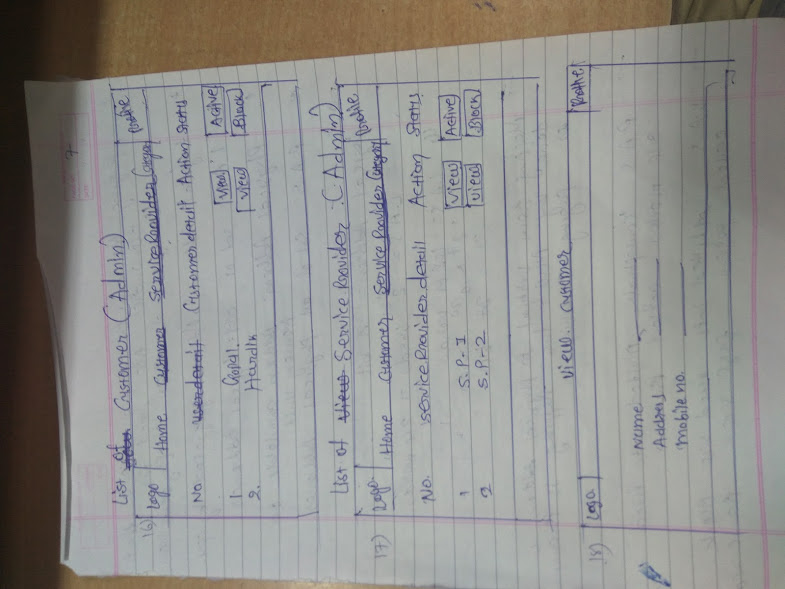 7
List of Customer (Admin)
16) Logo Home Customer Service Provider Category Profile
No. Customer detail Action Status
1 Gopal. View Active
2. Hardik View Block
List of Service Provider : (Admin)
17) Logo Home Customer Service Provider Category Profile
No. Service Provider detail Action Status
1 S.P-1 View Active
2 S.P-2 View Block
View Customer
18) Logo Profile
Name
Address
Mobile no.